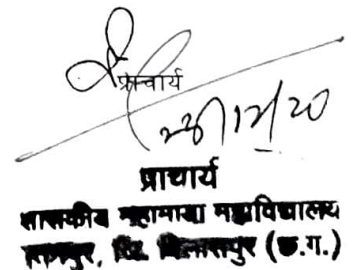 प्राचार्य
प्राचार्य
शासकीय महामाया महाविद्यालय
रतनपुर, जि. बिलासपुर (छ.ग.)